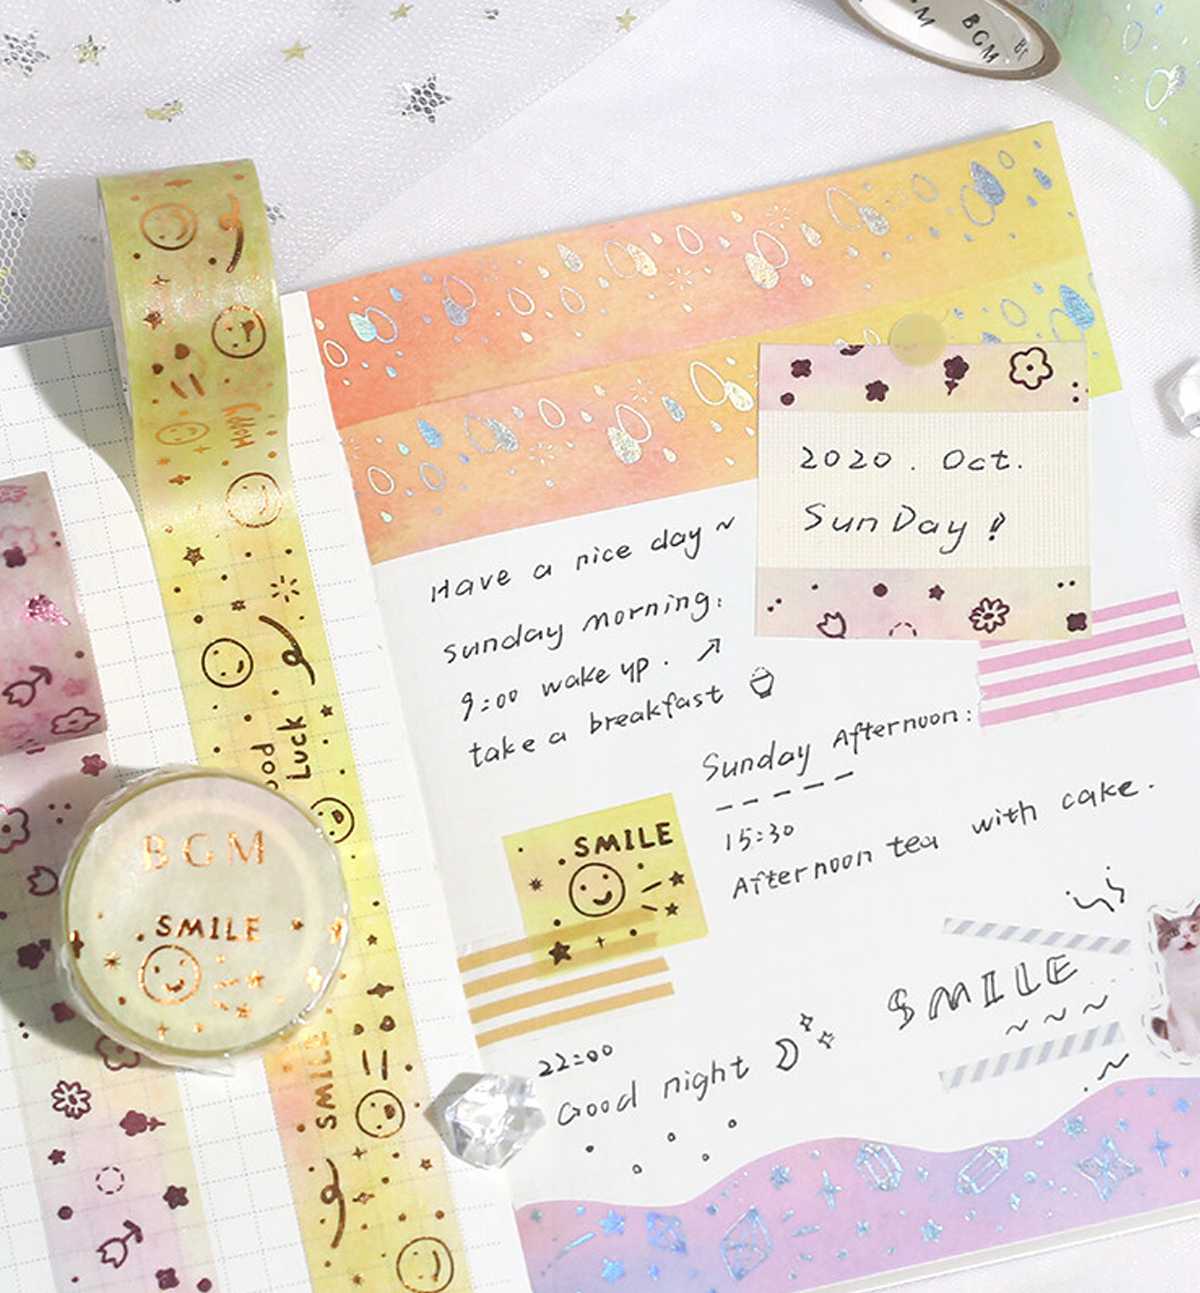 BGM
BGM
2020. Oct.
SunDay!
Have a nice day ~
sunday morning:
9:00 wake up.
take a breakfast
Sunday Afternoon:
15:30
Afternoon tea with cake.
SMILE
SMILE
22:00
Good night
Luck
BGM
SMILE
SMILE